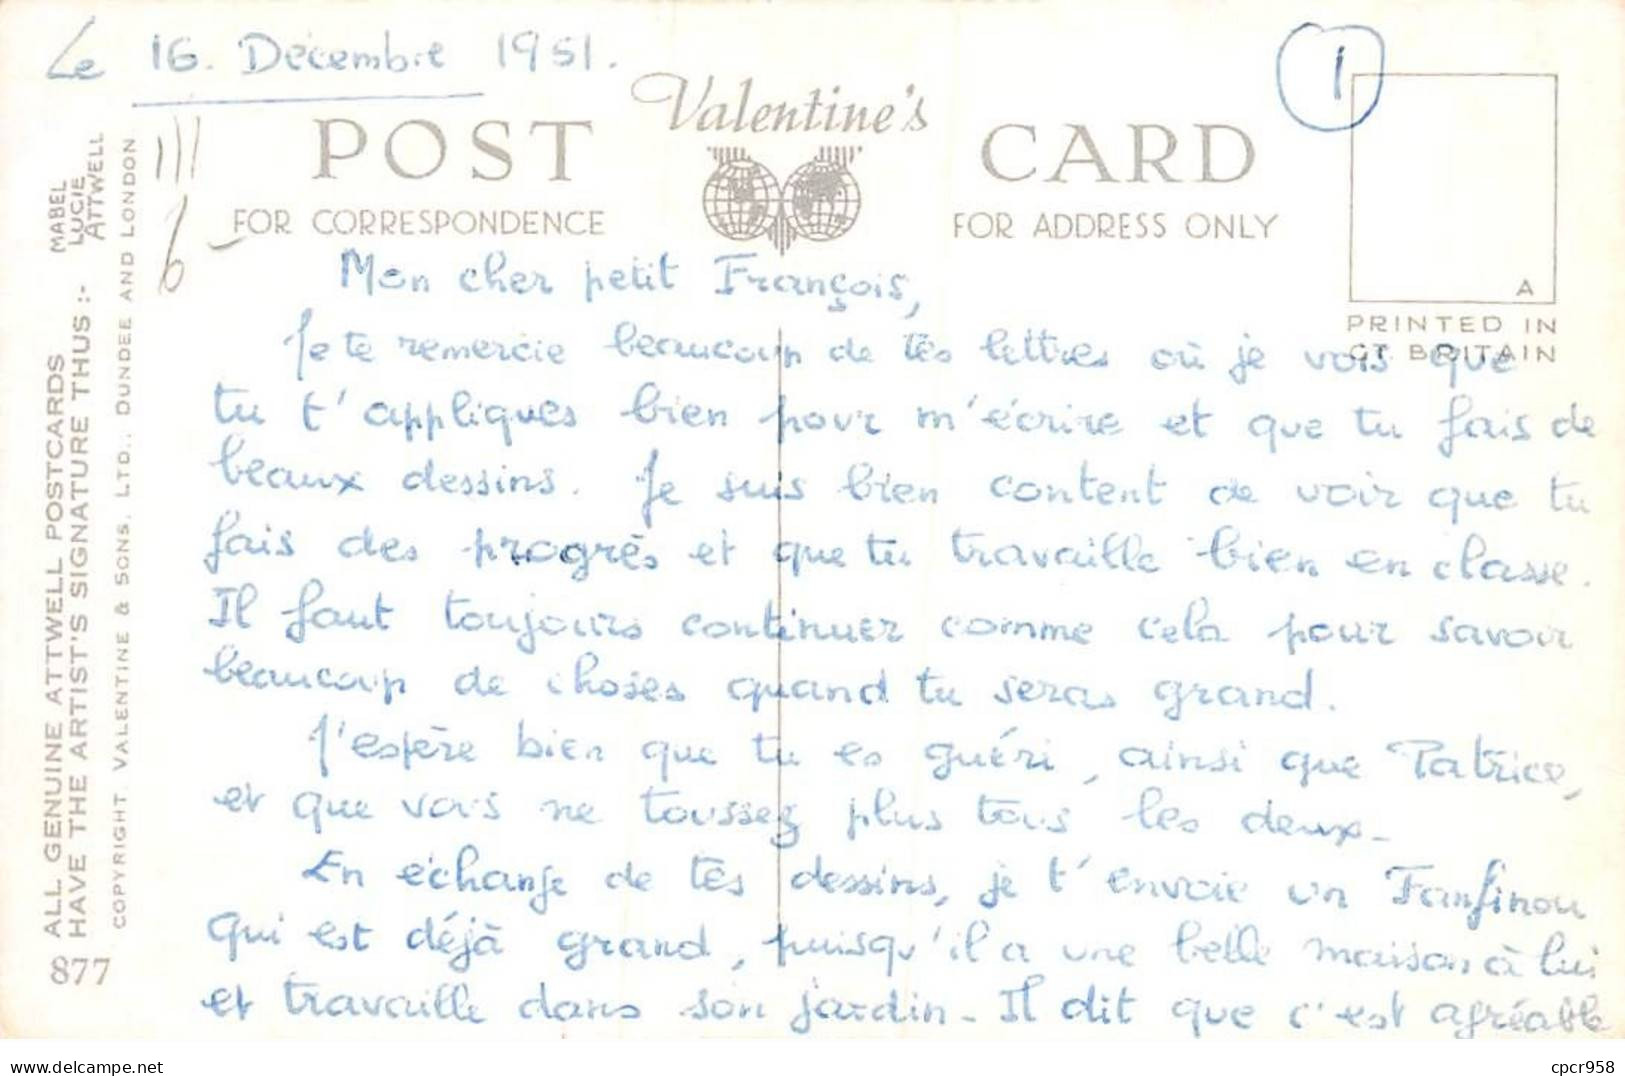 Le 16. Décembre 1951.
1
Valentine's
POST CARD
FOR CORRESPONDENCE
FOR ADDRESS ONLY
A
PRINTED IN
GT. BRITAIN
6-
Mon cher petit François,
Je te remercie beaucoup de tes lettres où je vois que
tu t'appliques bien pour m'écrire et que tu fais de
beaux dessins. Je suis bien content de voir que tu
fais des progrès et que tu travaille bien en classe.
Il faut toujours continuer comme cela pour savoir
beaucoup de choses quand tu seras grand.
J'espère bien que tu es guéri, ainsi que Patrice,
et que vous ne toussez plus tous les deux-
En échange de tes dessins, je t'envoie un Fanfinou
qui est déjà grand, puisqu'il a une belle maison à lui
et travaille dans son jardin- Il dit que c'est agréable
ALL GENUINE ATTWELL POSTCARDS
HAVE THE ARTIST'S SIGNATURE THUS :-
MABEL
LUCIE
ATTWELL
COPYRIGHT. VALENTINE & SONS. LTD., DUNDEE AND LONDON
877
www.delcampe.net
cpcr958